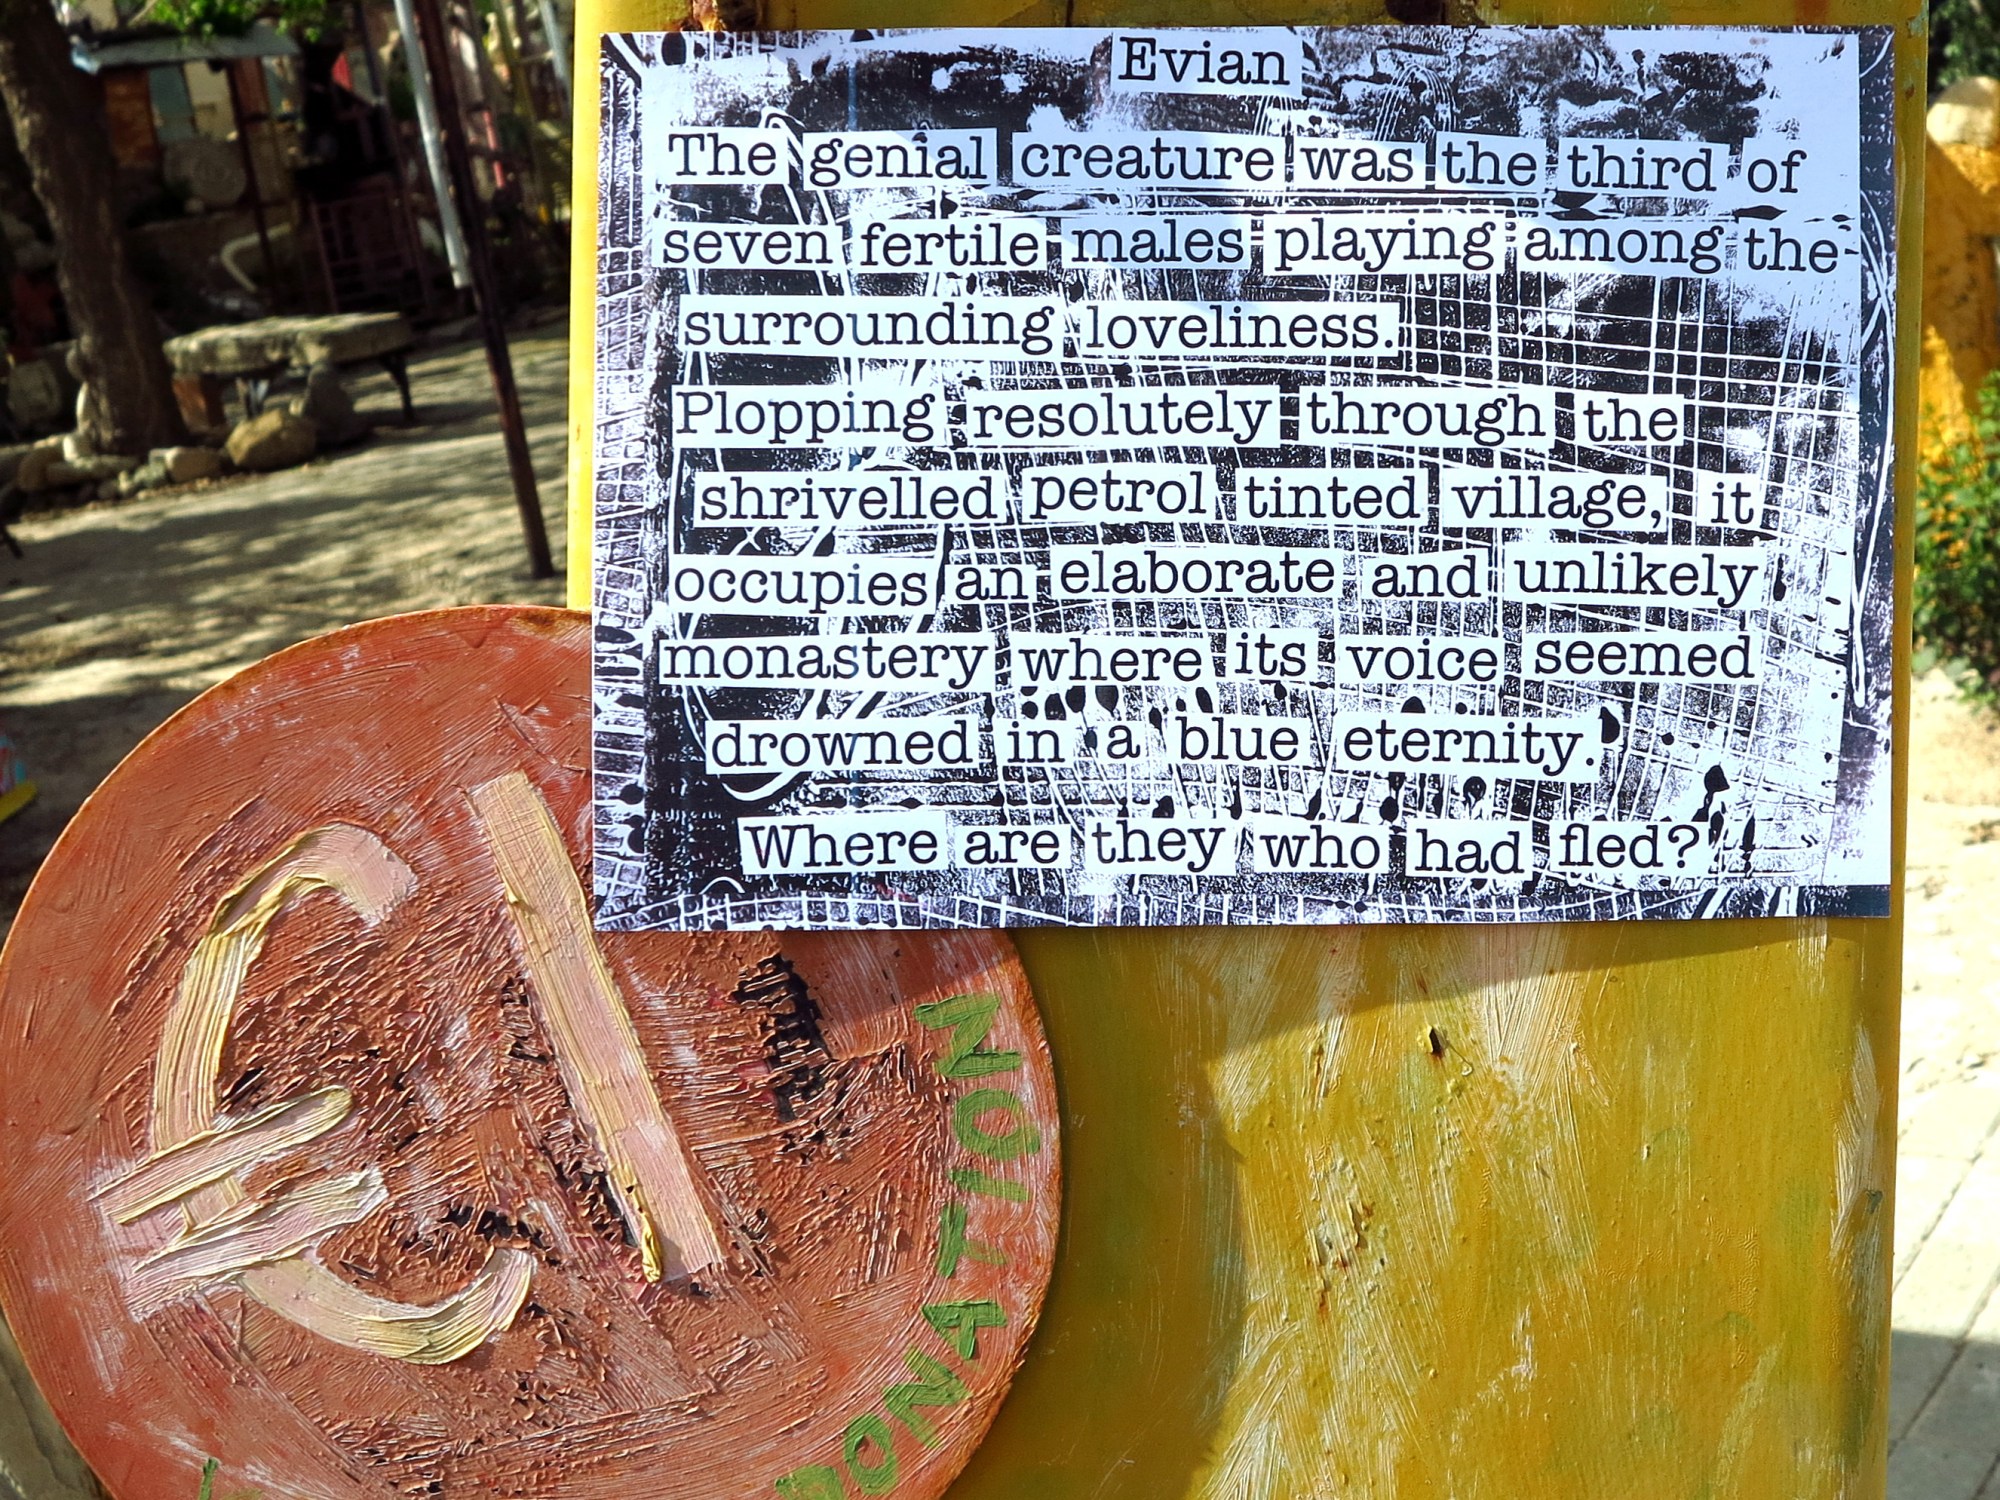 Evian
The genial creature was the third of
seven fertile males playing among the
surrounding loveliness.
Plopping resolutely through the
shrivelled petrol tinted village, it
occupies an elaborate and unlikely
monastery where its voice seemed
drowned in a blue eternity.
Where are they who had fled?
€1
DONATION